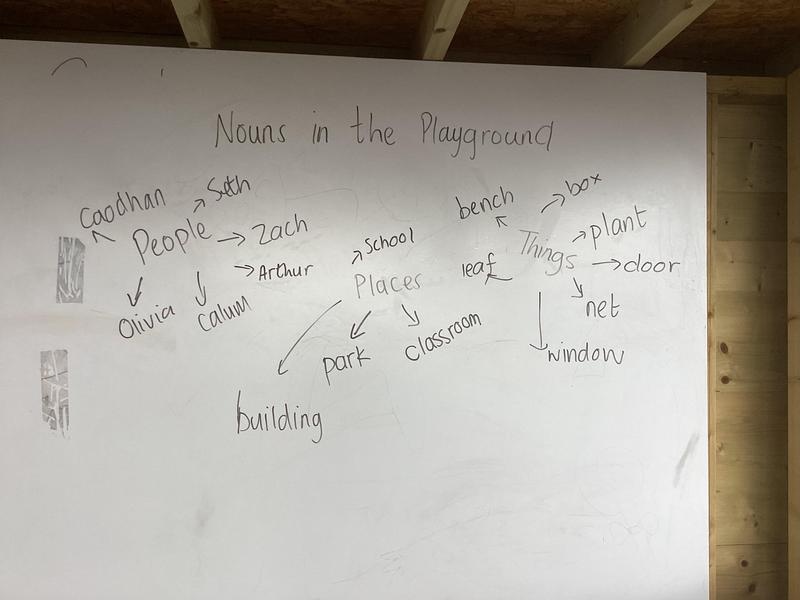 Nouns in the Playground
Caodhan
Seth
People
Zach
Arthur
Olivia
Calum
School
Places
park
classroom
building
bench
box
Things
plant
leaf
door
net
window